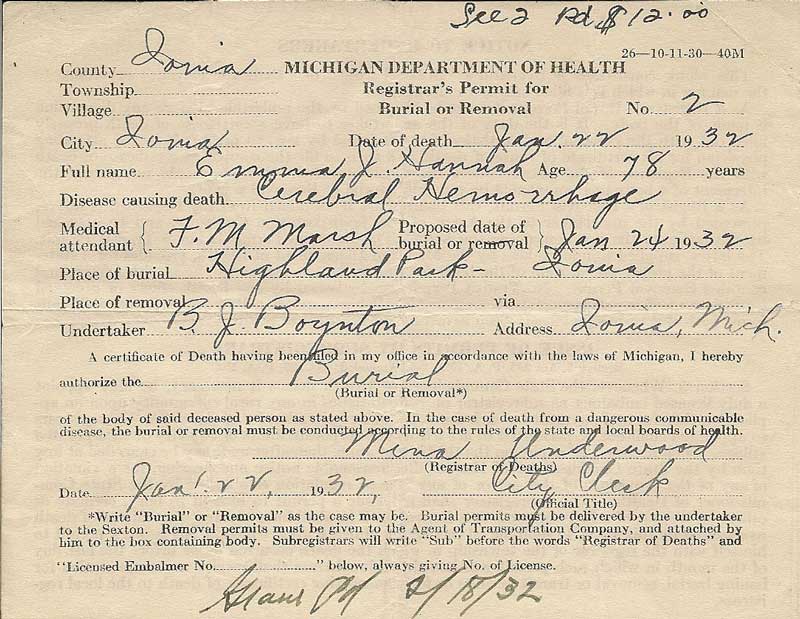 See 2 Pd. $12.00
26—10-11-30—40M
County Ionia MICHIGAN DEPARTMENT OF HEALTH
Township Registrar's Permit for
Village Burial or Removal No. 2
City Ionia Date of death Jan. 22 1932
Full name Emma J. Hannah Age 78 years
Disease causing death Cerebral Hemorrhage
Medical attendant { F. M. Marsh Proposed date of burial or removal } Jan 24 1932
Place of burial Highland Park - Ionia
Place of removal via
Undertaker B. J. Boynton Address Ionia, Mich.
A certificate of Death having been filed in my office in accordance with the laws of Michigan, I hereby
authorize the Burial
(Burial or Removal*)
of the body of said deceased person as stated above. In the case of death from a dangerous communicable
disease, the burial or removal must be conducted according to the rules of the state and local boards of health.
Mina Underwood
(Registrar of Deaths)
Date Jan. 22, 1932, City Clerk
(Official Title)
*Write "Burial" or "Removal" as the case may be. Burial permits must be delivered by the undertaker
to the Sexton. Removal permits must be given to the Agent of Transportation Company, and attached by
him to the box containing body. Subregistrars will write "Sub" before the words "Registrar of Deaths" and
"Licensed Embalmer No. " below, always giving No. of License.
Pd 2/18/32